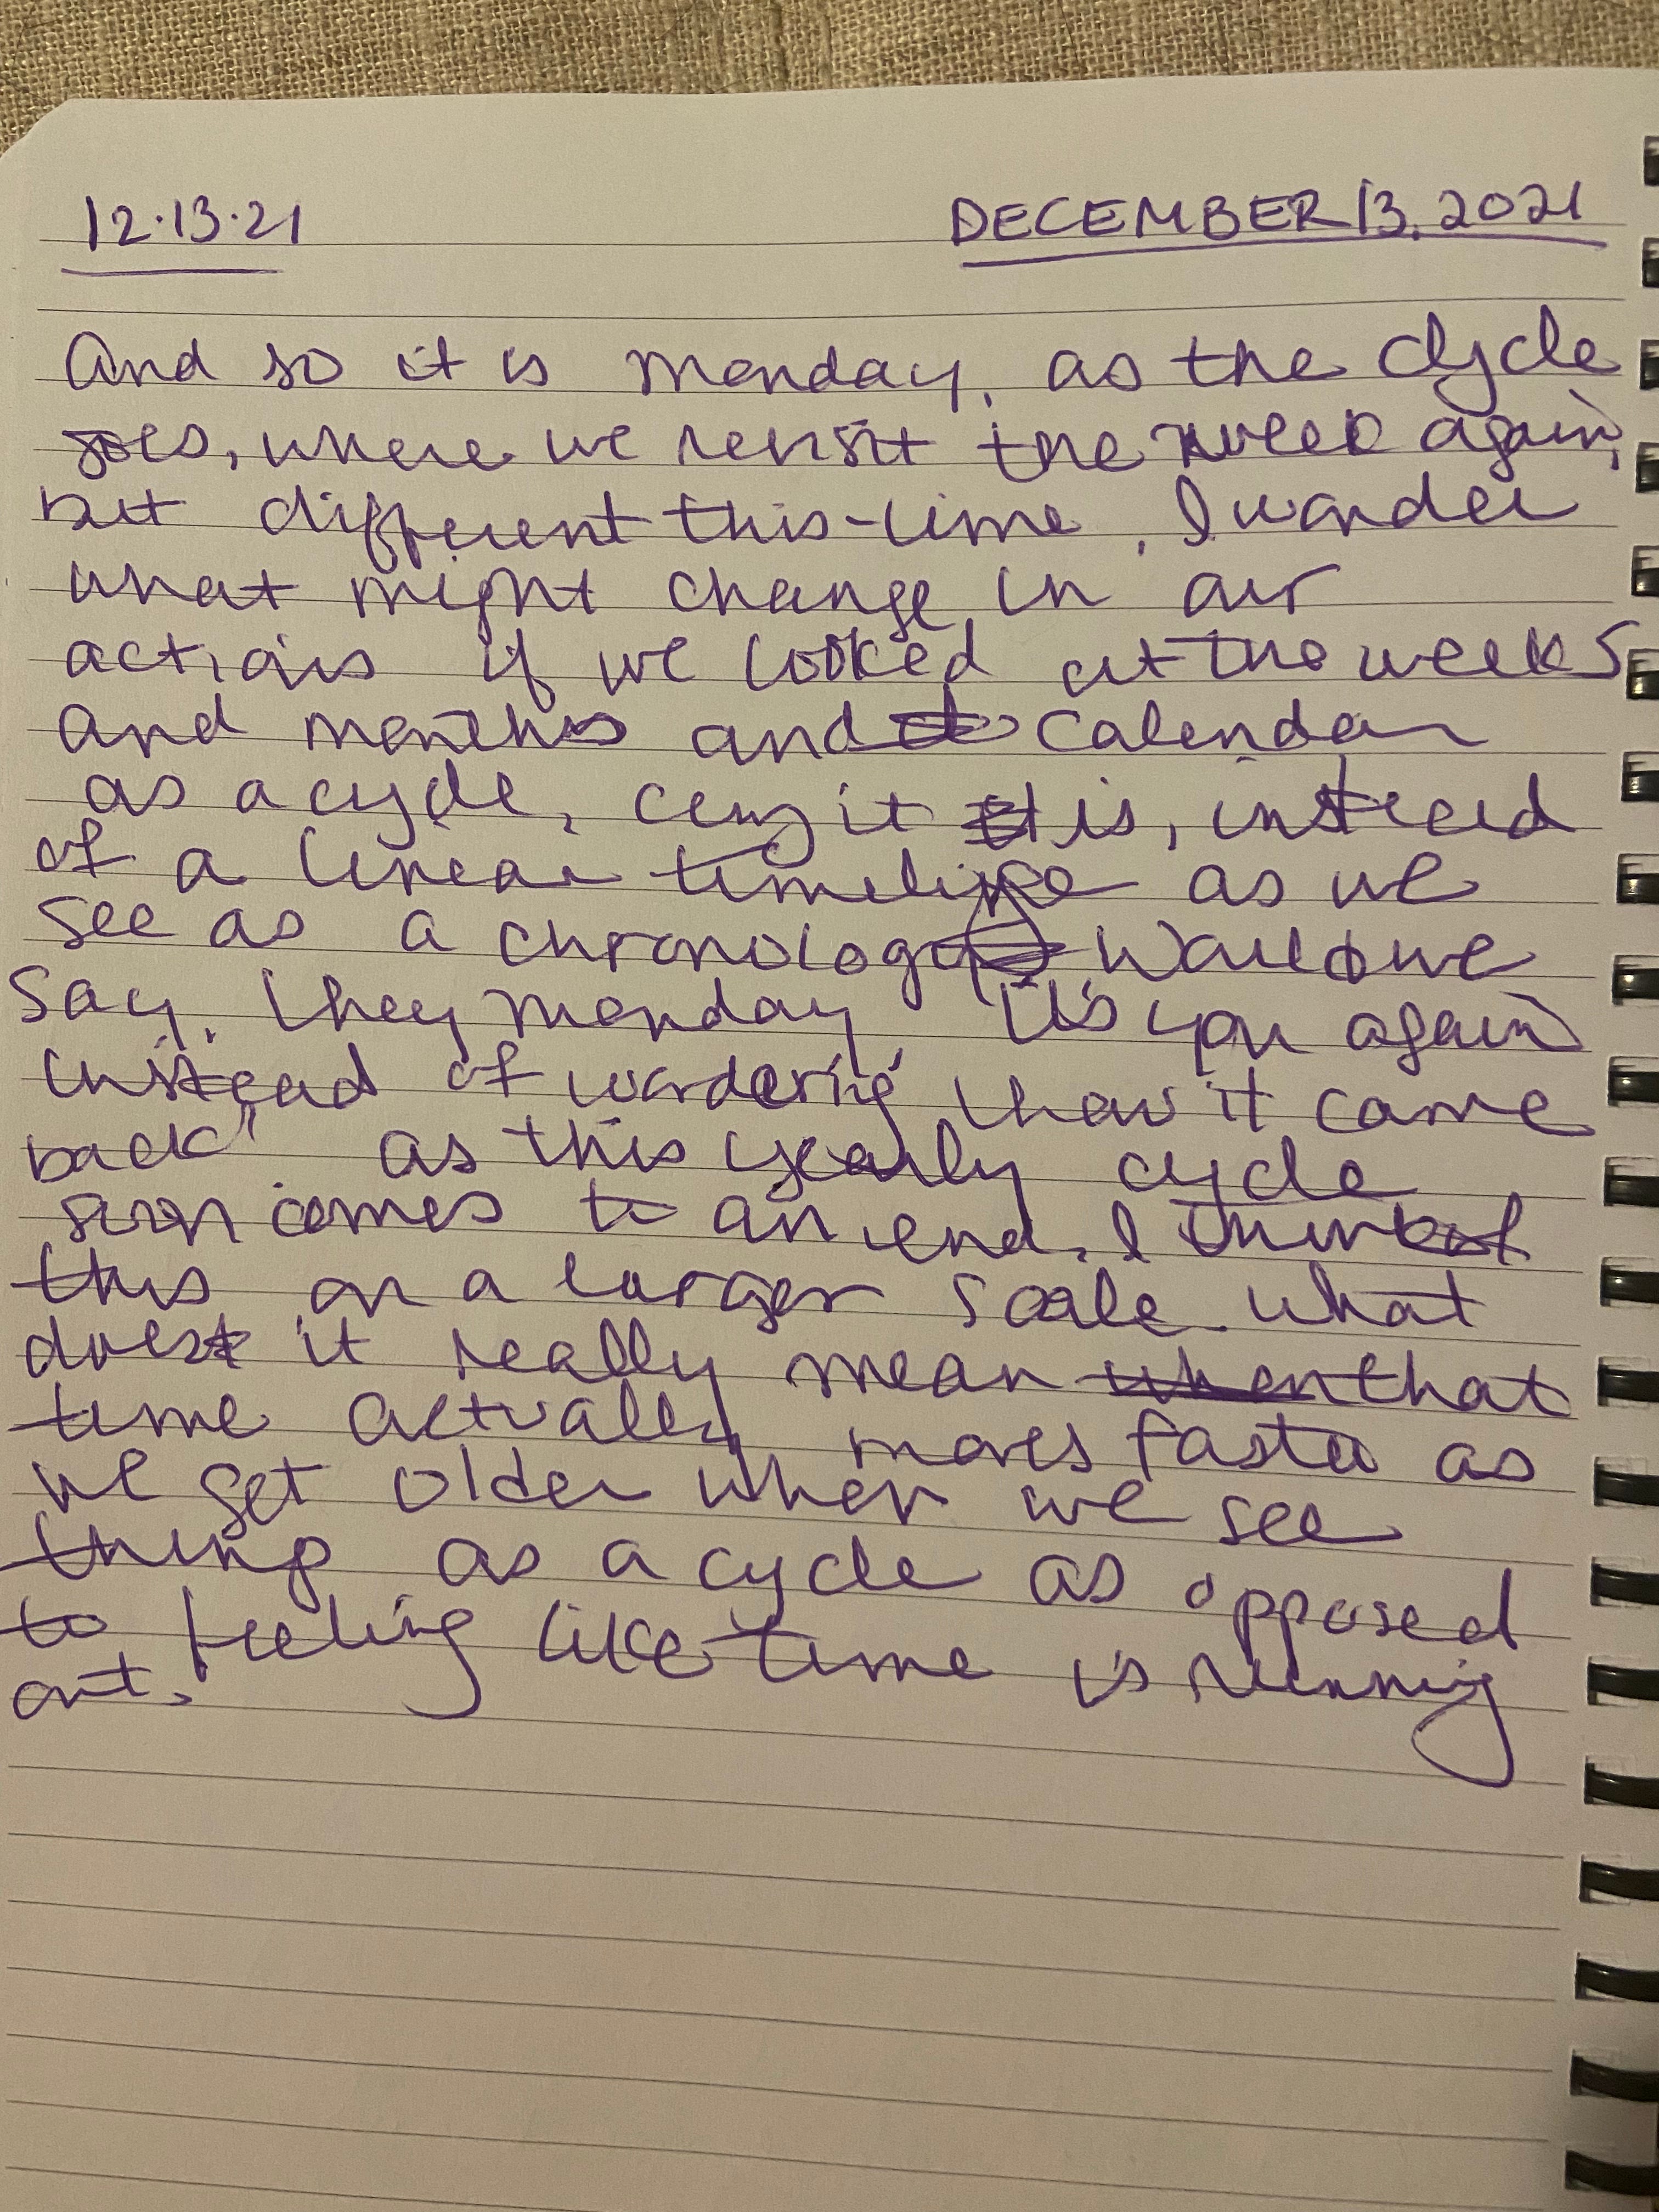 12.13.21 DECEMBER 13, 2021
And so it is Monday, as the cycle
goes, where we revisit the week again,
but different this time, I wonder
what might change in our
actions if we looked at the weeks
and months and calendar
as a cycle, it is, instead
of a linear timeline as we
see as a chronology. Would we
say, "hey Monday, it's you again"
instead of wondering "how it came
back". As this yearly cycle
soon comes to an end, I think of
this on a larger scale. What
does it really mean when that
time actually moves faster as
we get older when we see
things as a cycle as opposed
to feeling like time is running
out.